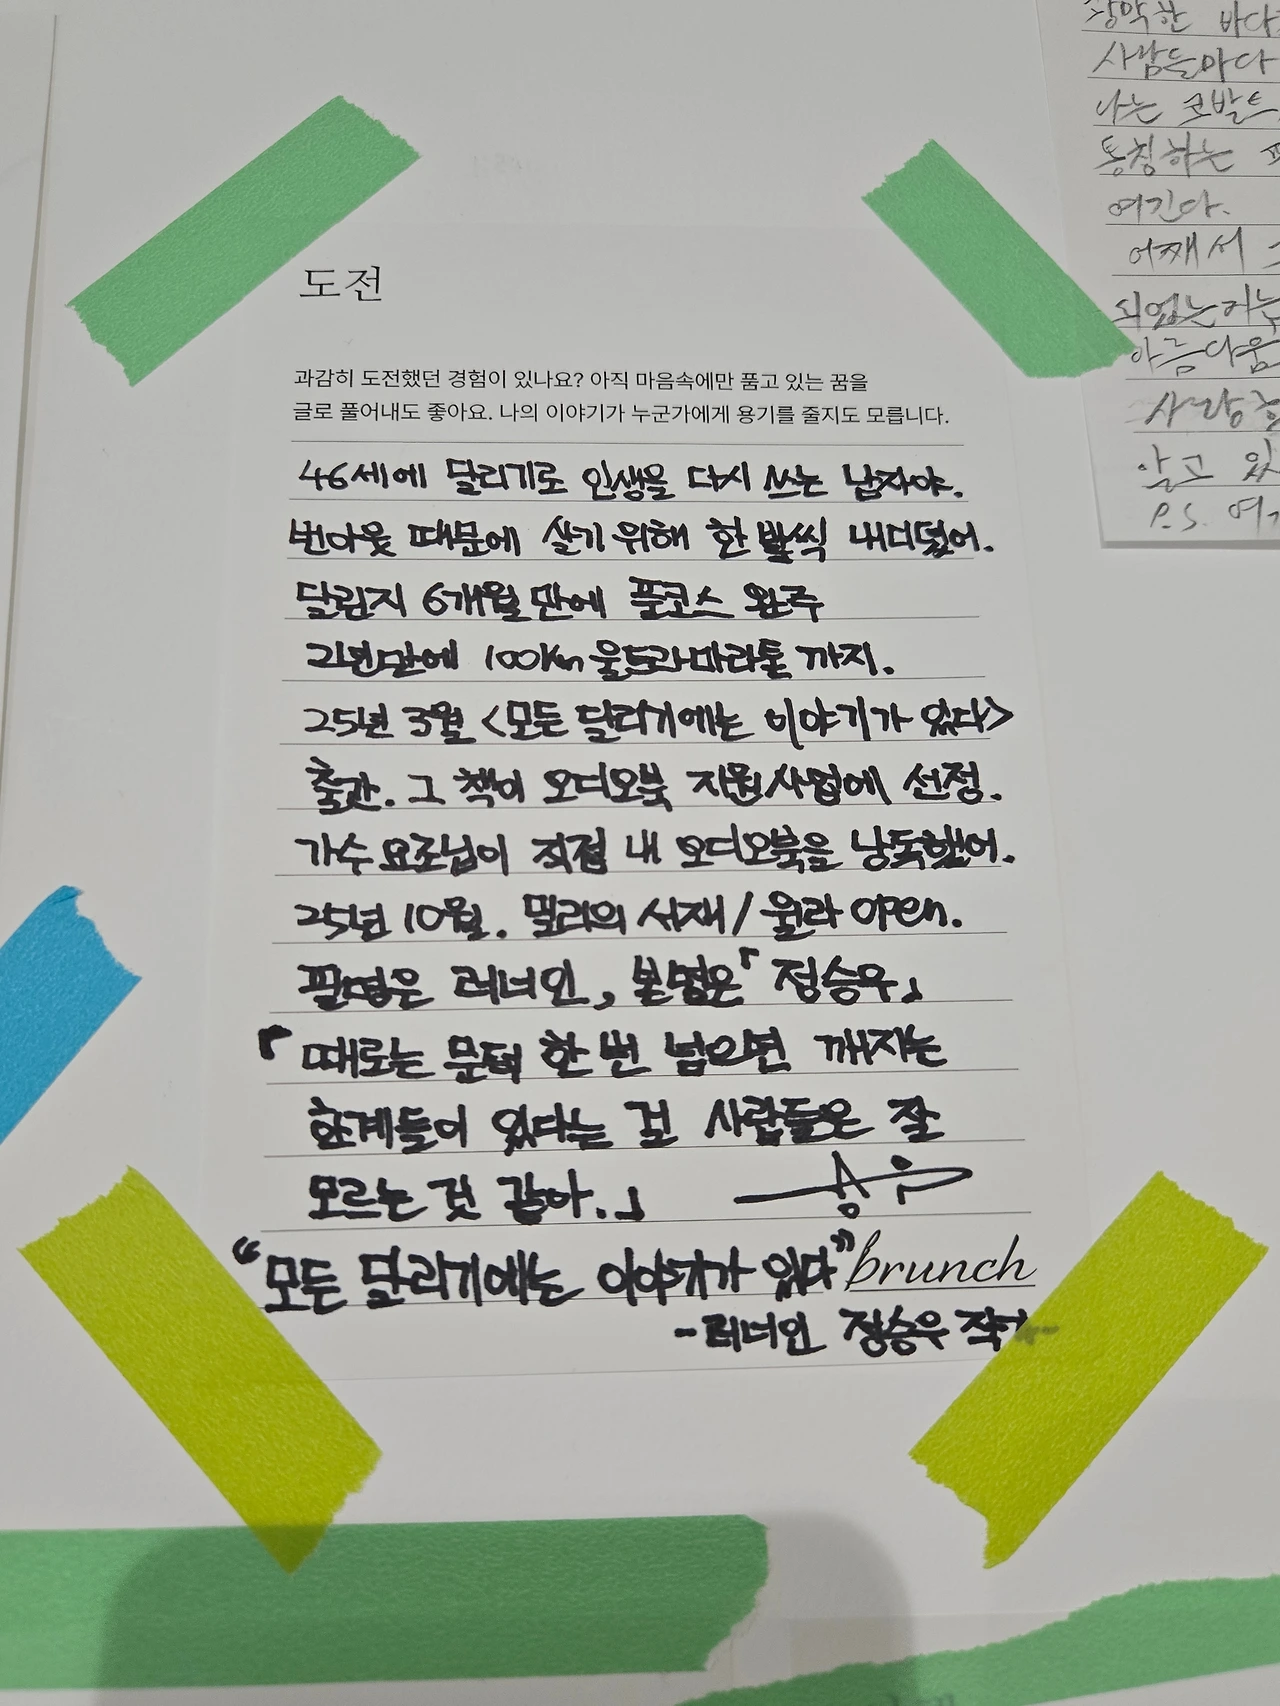 도전
과감히 도전했던 경험이 있나요? 아직 마음속에만 품고 있는 꿈을
글로 풀어내도 좋아요. 나의 이야기가 누군가에게 용기를 줄지도 모릅니다.
46세에 달리기로 인생을 다시 쓰는 남자야.
번아웃 때문에 살기 위해 한 발씩 내디뎠어.
달린지 6개월만에 풀코스 완주
2년만에 100Km 울트라마라톤 까지.
25년 3월 <모든 달리기에는 이야기가 있다>
출간. 그 책이 오디오북 지원사업에 선정.
가수 요조님이 직접 내 오디오북을 낭독했어.
25년 10월. 밀리의 서재 / 윌라 open.
필명은 러너인, 본명은 「정승우」
「때로는 문턱 한 번 넘으면 깨지는
한계들이 있다는 걸 사람들은 잘
모르는 것 같아.」
"모든 달리기에는 이야기가 있다" brunch
- 러너인 정승우 작가 -
장막한 바다
사람들마다
나는 코발트
통칭하는
여긴다.
어째서
되었는지는
아름다움
사랑
알고 있
P.S. 여기